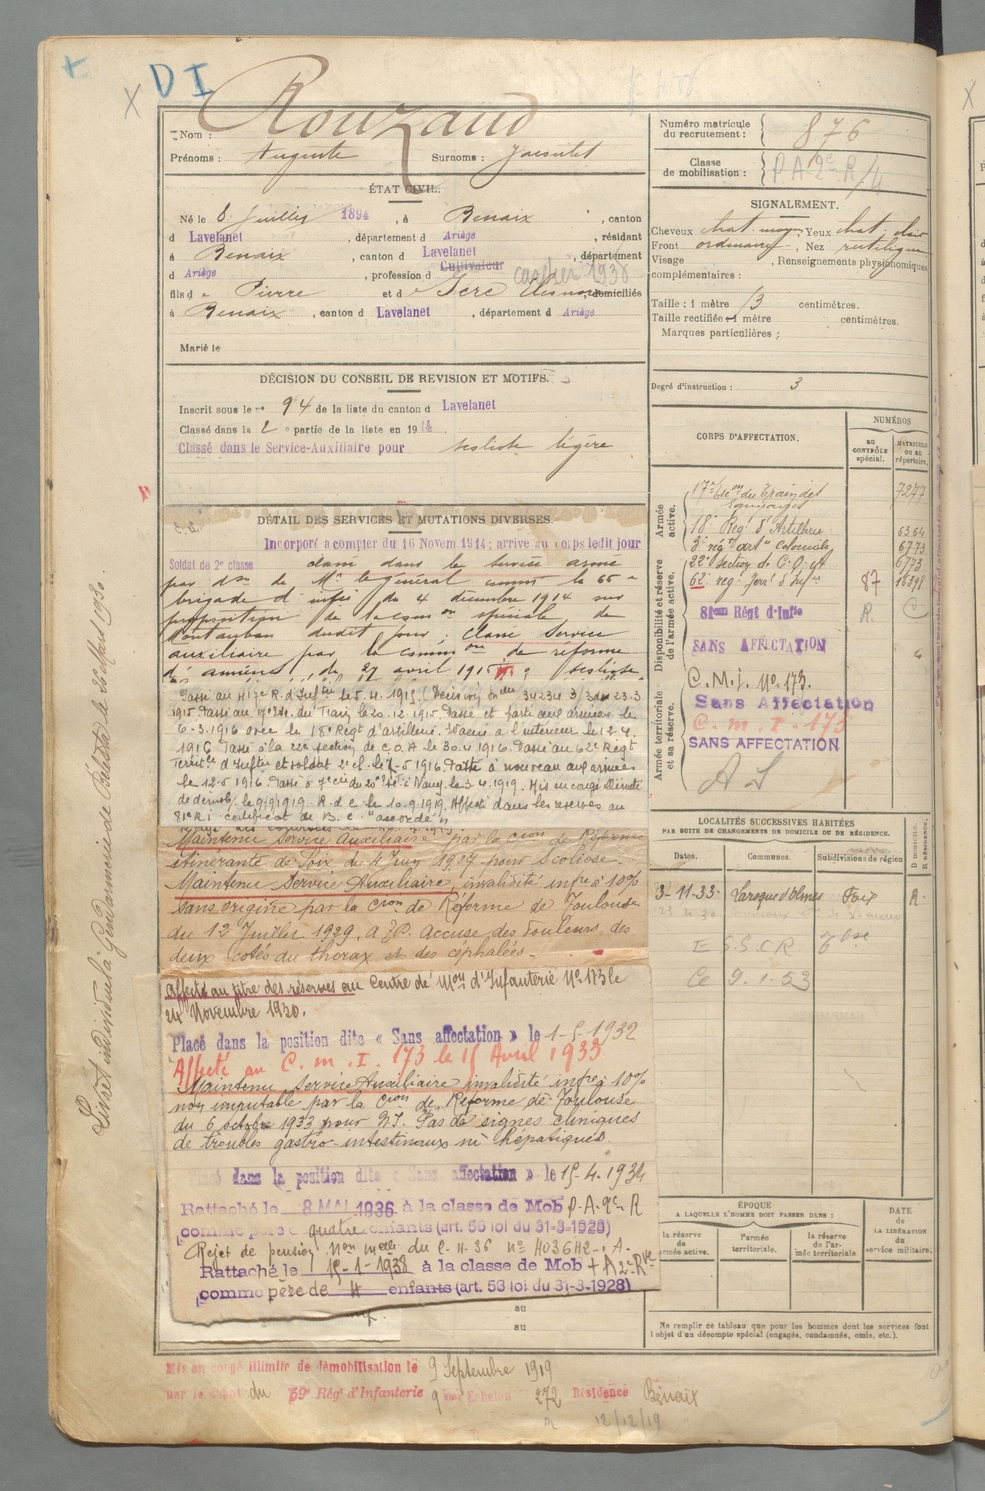 D I
Nom : Rouzaud
Prénoms : Auguste Surnoms :
ÉTAT CIVIL.
Né le 8 Juillet 1894, à Benaix, canton
d Lavelanet, département d Ariège, résidant
à Benaix, canton d Lavelanet, département
d Ariège, profession d Cultivateur
fils de Pierre et de, domiciliés
à Benaix, canton d Lavelanet, département d Ariège
Marié le
DÉCISION DU CONSEIL DE REVISION ET MOTIFS.
Inscrit sous le no 94 de la liste du canton d Lavelanet
Classé dans la 2e partie de la liste en 1914
Classé dans le Service-Auxiliaire pour scoliose légère
DÉTAIL DES SERVICES ET MUTATIONS DIVERSES.
Incorporé a compter du 16 Novem 1914; arrivé au corps ledit jour
Soldat de 2e classe classé dans le service armé
par don de Mr le général comm le 66e
brigade d'infie du 4 décembre 1914 sur
proposition de la comon spéciale de
Montauban dudit jour; classé Service
auxiliaire par la common de réforme
d'Amiens du 27 avril 1915 scoliose
Passé au R. d'Inftie le 5.4.1915 (Décision mlle 34234 3/3 du 23.3
1915. Passé au Esc. du Train le 20.12.1915. Passé et parti aux armées le
6-3.1916 avec le 18e Régt d'artillerie. à l'intérieur le 12.4.
1916 Passé à la 22e section de C.O.A le 30.4 1916. Passé au 62e Régt
Territ. d'Inftie et soldat 2e cl. le 7-5 1916. Passé à nouveau aux armées
le 12.5 1916. Nancy le 3.4.1919. Mis en congé illimité
de démob. le 9/9/1919. R.d.C. le 10.9.1919. Affecté dans les réserves au
81e R.I. certificat de B.C. "accordé"
Maintenu Service Auxiliaire par la Cion de Réforme
itinérante de Foix du 4 Juin 1927 pour Scoliose.
Maintenu Service Auxiliaire, invalidité infre à 10%
sans origine par la Cion de Réforme de Toulouse
du 12 Juillet 1929. Accuse des douleurs des
deux cotés du thorax et des céphalées.
Affecté au titre des réserves au Centre de Mon d'Infanterie No 173 le
24 Novembre 1930.
Placé dans la position dite « Sans affectation » le 1-5-1932
Affecté au C. m. I. 173 le 15 Avril 1933
Maintenu Service Auxiliaire invalidité infre à 10%
non imputable par la Cion de Réforme de Toulouse
du 6 octobre 1933 pour Pas de signes cliniques
de troubles gastro-intestinaux ni hépatiques.
Placé dans la position dite « Sans affectation » le 15-4.1934
Rattaché le 8 MAI 1936 à la classe de Mob P-A-2e-R
comme père de quatre enfants (art. 58 loi du 31-3-1928)
Rejet de pension Non melle du 6-11-36 no
Rattaché le 15-1-1938 à la classe de Mob
comme père de 4 enfants (art. 58 loi du 31-3-1928)
au
au
Mis en congé illimité de démobilisation le 9 Septembre 1919
par le dépôt du 59e Régt d'Infanterie 9e Echelon 272 Résidence Bénaix
12/12/19
Livret individuel à Gendarmerie de Bélesta le 26 1930.
Numéro matricule du recrutement : 876
Classe de mobilisation : P A 2e R/4
SIGNALEMENT.
Cheveux chat. moyen, Yeux chat. clair
Front ordinaire, Nez rectiligne
Visage , Renseignements physionomiques
complémentaires :
Taille : 1 mètre centimètres.
Taille rectifiée 1 mètre centimètres.
Marques particulières :
Degré d'instruction : 3
CORPS D'AFFECTATION.
NUMÉROS
AU CONTRÔLE spécial.
MATRICULE OU AU répertoire.
Armée active.
17e Escon du Train des Equipages 7277
18e Régt d'Artillerie
3e régt d'artie Coloniale 6773
Disponibilité et réserve de l'armée active.
22e Section de C.O.A 6773
62e régt territ. d'Infie
81eme Régt d'Inftie R.
SANS AFFECTATION
Armée territoriale et sa réserve.
C.M.I. No 173.
Sans Affectation
C. m. I. 173
SANS AFFECTATION
LOCALITÉS SUCCESSIVES HABITÉES
PAR SUITE DE CHANGEMENTS DE DOMICILE OU DE RÉSIDENCE.
Dates. Communes. Subdivisions de région D DOMICILE. R RÉSIDENCE.
3-11-33 Laroque d'Olmes Foix R.
E S.S.C.R
Ce 9.1.53
ÉPOQUE
A LAQUELLE L'HOMME DOIT PASSER DANS :
la réserve de l'armée active.
l'armée territoriale.
la réserve de l'armée territoriale.
DATE de LA LIBÉRATION du service militaire.
Ne remplir ce tableau que pour les hommes dont les services font
l'objet d'un décompte spécial (engagés, condamnés, omis, etc.).